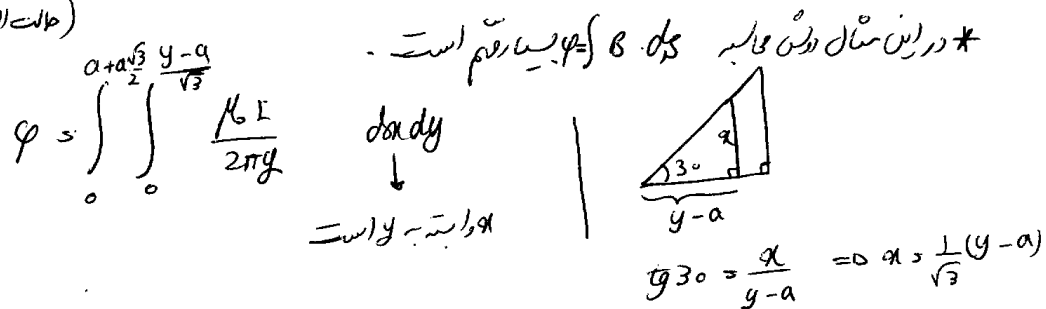 (حالت ا
* در این مثال روش محاسبه φ = ∫ B . ds بسیار مهم است .
φ = ∫₀^{a+a√3/2} ∫₀^{(y-a)/√3} μ₀I/2πy dx dy
↓
x وابسته به y است
30
x
y-a
tg 30 = x/(y-a) ⇒ x = 1/√3 (y-a)